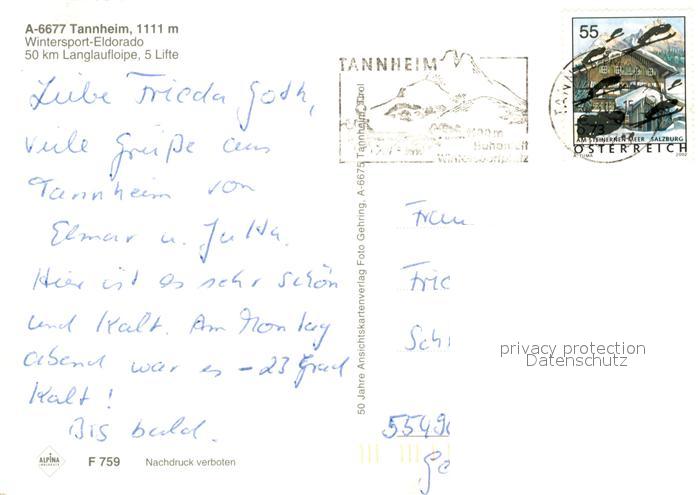 A-6677 Tannheim, 1111 m
Wintersport-Eldorado
50 km Langlaufloipe, 5 Lifte
Liebe Frieda Goth,
viele Grüße aus
Tannheim von
Elmar u. Jutta.
Hier ist es sehr schön
und kalt. Am Montag
abend war es -23 Grad
kalt!
Bis bald.
ALPINA
F 759
Nachdruck verboten
50 Jahre Ansichtskartenverlag Foto Gehring, A-6675 Tannheim, Tirol
TANNHEIM
1100m
Wintersportplatz
55
AM STEINERNEN MEER SALZBURG
ÖSTERREICH
A. TUMA 2002
Frau
Frie
Sch
5549
Go
privacy protection
Datenschutz